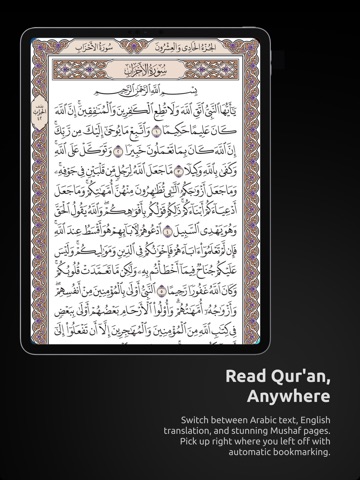 الجُزْءُ الحَادِي وَالعِشْرُونَ
سُورَةُ الأَحْزَابِ
سُورَةُ الأَحْزَابِ
بِسْمِ ٱللَّهِ ٱلرَّحْمَٰنِ ٱلرَّحِيمِ
يَٰٓأَيُّهَا ٱلنَّبِيُّ ٱتَّقِ ٱللَّهَ وَلَا تُطِعِ ٱلْكَٰفِرِينَ وَٱلْمُنَٰفِقِينَۗ إِنَّ ٱللَّهَ
كَانَ عَلِيمًا حَكِيمًا ١ وَٱتَّبِعْ مَا يُوحَىٰٓ إِلَيْكَ مِن رَّبِّكَۚ
إِنَّ ٱللَّهَ كَانَ بِمَا تَعْمَلُونَ خَبِيرًا ٢ وَتَوَكَّلْ عَلَى ٱللَّهِۚ
وَكَفَىٰ بِٱللَّهِ وَكِيلًا ٣ مَّا جَعَلَ ٱللَّهُ لِرَجُلٍ مِّن قَلْبَيْنِ فِي جَوْفِهِۦۚ
وَمَا جَعَلَ أَزْوَٰجَكُمُ ٱلَّٰٓـِٔي تُظَٰهِرُونَ مِنْهُنَّ أُمَّهَٰتِكُمْۚ وَمَا جَعَلَ
أَدْعِيَآءَكُمْ أَبْنَآءَكُمْۚ ذَٰلِكُمْ قَوْلُكُم بِأَفْوَٰهِكُمْۖ وَٱللَّهُ يَقُولُ ٱلْحَقَّ
وَهُوَ يَهْدِي ٱلسَّبِيلَ ٤ ٱدْعُوهُمْ لِأٓبَآئِهِمْ هُوَ أَقْسَطُ عِندَ ٱللَّهِۚ
فَإِن لَّمْ تَعْلَمُوٓا۟ ءَابَآءَهُمْ فَإِخْوَٰنُكُمْ فِي ٱلدِّينِ وَمَوَٰلِيكُمْۚ وَلَيْسَ
عَلَيْكُمْ جُنَاحٌ فِيمَآ أَخْطَأْتُم بِهِۦ وَلَٰكِن مَّا تَعَمَّدَتْ قُلُوبُكُمْۚ
وَكَانَ ٱللَّهُ غَفُورًا رَّحِيمًا ٥ ٱلنَّبِيُّ أَوْلَىٰ بِٱلْمُؤْمِنِينَ مِنْ أَنفُسِهِمْۖ
وَأَزْوَٰجُهُۥٓ أُمَّهَٰتُهُمْۗ وَأُو۟لُوا۟ ٱلْأَرْحَامِ بَعْضُهُمْ أَوْلَىٰ بِبَعْضٍ
فِي كِتَٰبِ ٱللَّهِ مِنَ ٱلْمُؤْمِنِينَ وَٱلْمُهَٰجِرِينَ إِلَّآ أَن تَفْعَلُوٓا۟ إِلَىٰٓ
Read Qur'an,
Anywhere
Switch between Arabic text, English
translation, and stunning Mushaf pages.
Pick up right where you left off with
automatic bookmarking.